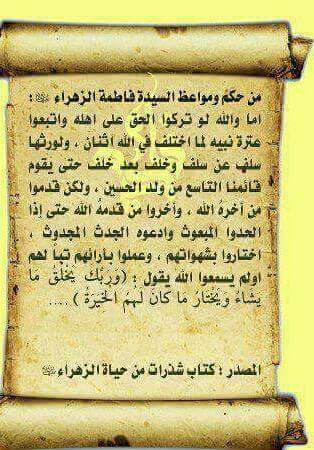 من حكم ومواعظ السيدة فاطمة الزهراء :
اما والله لو تركوا الحق على اهله واتبعوا
عترة نبيه لما اختلف في الله أثنان ، ولورثها
سلف عن سلف وخلف بعد خلف حتى يقوم
قائمنا التاسع من ولد الحسين ، ولكن قدموا
من أخره الله ، وأخروا من قدمه الله حتى إذا
الحدوا المبعوث وادعوه الجدث المجدوث ،
اختاروا بشهواتهم ، وعملوا بارائهم تبا لهم
اولم يسمعوا الله يقول : (وَرَبُّكَ يَخْلُقُ مَا
يَشَاءُ وَيَخْتَارُ مَا كَانَ لَهُمُ الْخِيَرَةُ ) ....
المصدر : كتاب شذرات من حياة الزهراء